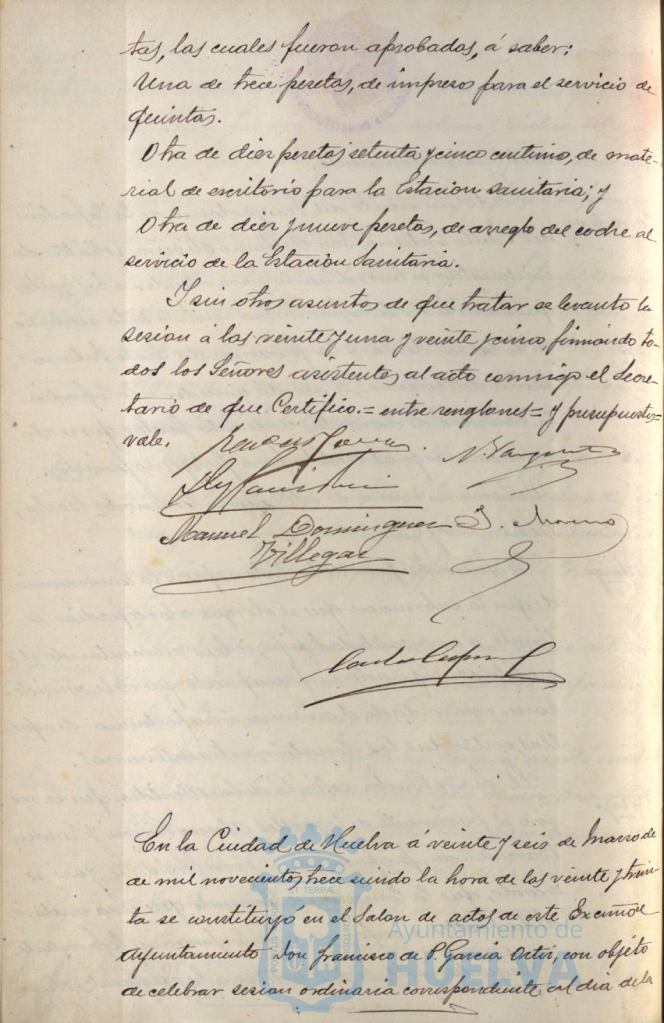 tas, las cuales fueron aprobadas, á saber:
Una de trece pesetas, de impresos para el servicio de
quintas.
Otra de diez pesetas setenta y cinco centimo, de mate-
rial de escritorio para la Estacion sanitaria; y
Otra de diez y nueve pesetas, de arreglo del coche al
servicio de la Estacion Sanitaria.
Y sin otros asuntos de que tratar se levanto la
sesion á las veinte y una y veinte y cinco, firmando to-
dos los Señores asistentes al acto conmigo el Secre-
tario de que Certifico.= entre renglones= y presupuestos=
vale.
Manuel Dominguez J. Moreno
Villegas
En la Ciudad de Huelva á veinte y seis de Marzo de
de mil novecientos trece siendo la hora de las veinte y trein-
ta se constituyó en el Salon de actos de este Excmo.
Ayuntamiento Don Francisco de P. Garcia Ortiz, con objeto
de celebrar sesion ordinaria correspondiente al dia de la
Ayuntamiento de
HUELVA